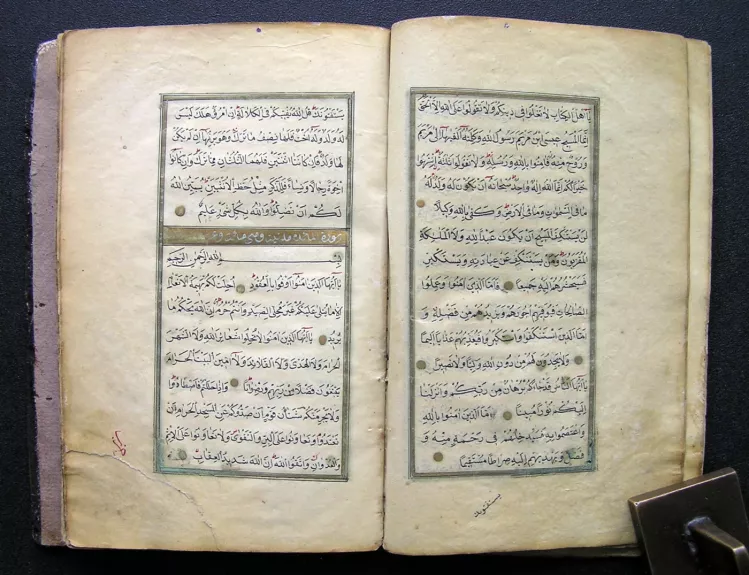 يا اهل الكتاب لا تغلوا في دينكم ولا تقولوا على الله الا الحق
انما المسيح عيسى ابن مريم رسول الله وكلمته القيها الى مريم
وروح منه فامنوا بالله ورسله ولا تقولوا ثلثة انتهوا
خيرا لكم انما الله اله واحد سبحانه ان يكون له ولد له
ما في السموات وما في الارض وكفى بالله وكيلا
لن يستنكف المسيح ان يكون عبدا لله ولا الملئكة
المقربون ومن يستنكف عن عبادته ويستكبر
فسيحشرهم اليه جميعا فاما الذين امنوا وعملوا
الصالحات فيوفيهم اجورهم ويزيدهم من فضله و
اما الذين استنكفوا واستكبروا فيعذبهم عذابا اليما
ولا يجدون لهم من دون الله وليا ولا نصيرا
يا ايها الناس قد جاءكم برهان من ربكم وانزلنا
اليكم نورا مبينا فاما الذين امنوا بالله
واعتصموا به فسيدخلهم في رحمة منه و
فضل ويهديهم اليه صراطا مستقيما
يستفتونك
يستفتونك قل الله يفتيكم في الكلالة ان امرؤ هلك ليس
له ولد وله اخت فلها نصف ما ترك وهو يرثها ان لم يكن
لها ولد فان كانتا اثنتين فلهما الثلثان مما ترك وان كانوا
اخوة رجالا ونساء فللذكر مثل حظ الانثيين يبين الله
لكم ان تضلوا والله بكل شئ عليم
سورة مائده مدنية وهي مائة و
بسم الله الرحمن الرحيم
يا ايها الذين امنوا اوفوا بالعقود احلت لكم بهيمة الانعام
الا ما يتلى عليكم غير محلي الصيد وانتم حرم ان الله يحكم ما
يريد يا ايها الذين امنوا لا تحلوا شعائر الله ولا الشهر
الحرام ولا الهدى ولا القلائد ولا امين البيت الحرام
يبتغون فضلا من ربهم ورضوانا واذا حللتم فاصطادوا
ولا يجرمنكم شنان قوم ان صدوكم عن المسجد الحرام ان
تعتدوا وتعاونوا على البر والتقوى ولا تعاونوا على الاثم
والعدوان واتقوا الله ان الله شديد العقاب